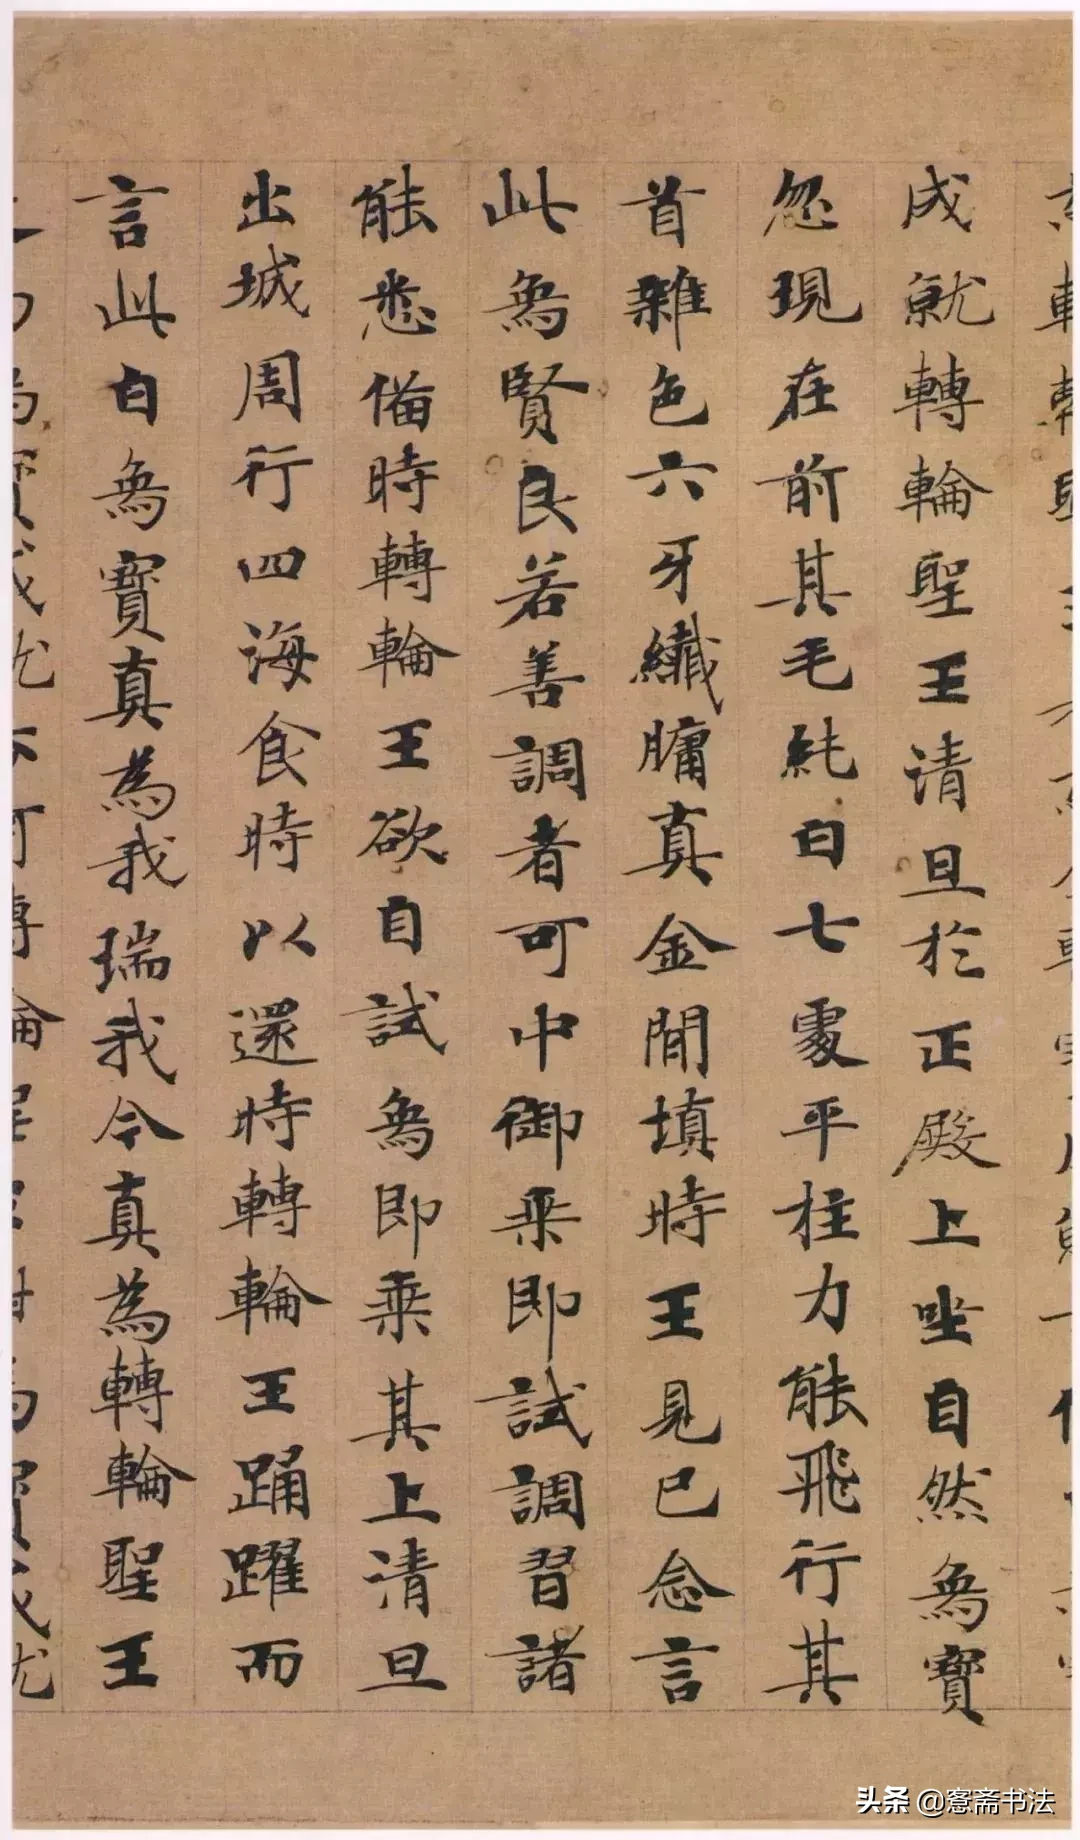 成就轉輪聖王清旦於正殿上坐自然象寶
忽現在前其毛純白七處平柱力能飛行其
首雜色六牙纖𦟛真金間填時王見已念言
此象賢良若善調者可中御乘即試調習諸
能悉俻時轉輪王欲自試象即乘其上清旦
出城周行四海食時以還時轉輪王踊躍而
言此白象寶真為我瑞我今真為轉輪聖王
头条 @窓斋书法